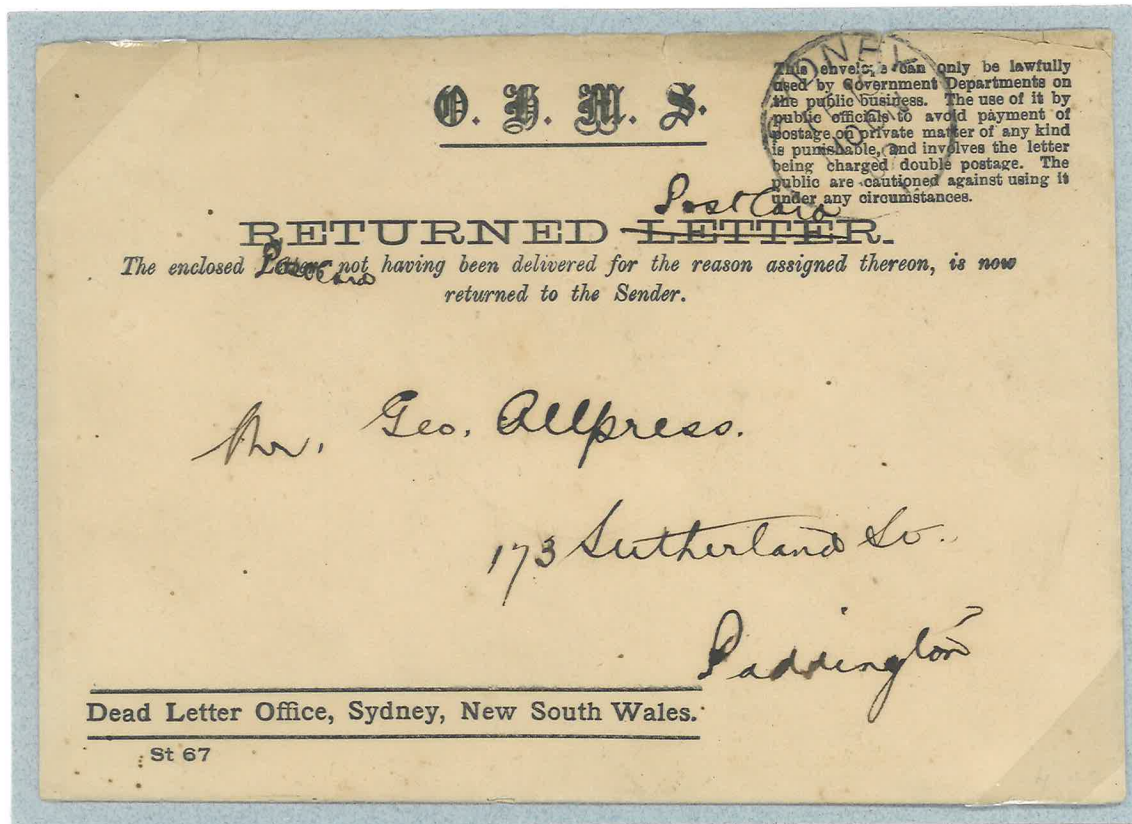 O. H. M. S.
SYDNEY
This envelope can only be lawfully
used by Government Departments on
the public business. The use of it by
public officials to avoid payment of
postage on private matter of any kind
is punishable, and involves the letter
being charged double postage. The
public are cautioned against using it
under any circumstances.
Post Card
RETURNED LETTER.
The enclosed Letter not having been delivered for the reason assigned thereon, is now
Post Card
returned to the Sender.
Mr. Geo. Allpress.
173 Sutherland St.
Paddington
Dead Letter Office, Sydney, New South Wales.
St 67